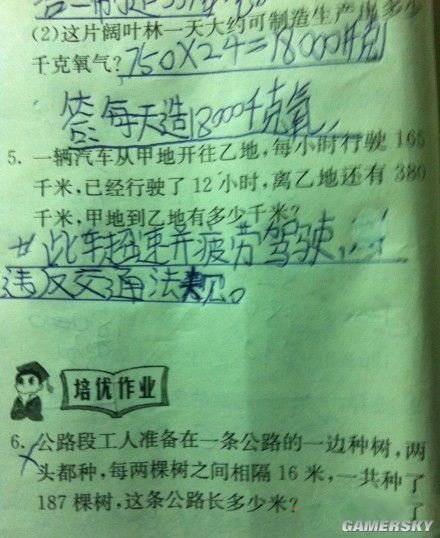 (2)这片阔叶林一天大约可制造生产出多少
千克氧气? 750×24=18000千克
答每天造18000千克氧
5. 一辆汽车从甲地开往乙地,每小时行驶165
千米,已经行驶了12小时,离乙地还有380
千米,甲地到乙地有多少千米?
此车超速并疲劳驾驶
违反交通法规。
培优作业
6. 公路段工人准备在一条公路的一边种树,两
头都种,每两棵树之间相隔16米,一共种了
187棵树,这条公路长多少米?
了
GAMERSKY